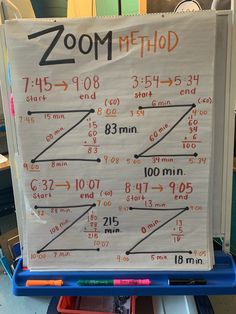 ZOOM METHOD
7:45 → 9:08
start end
3:54 → 5:34
start end
15 min.
7:45 8:00
60 min.
15
60
8
83
83 min.
8 min
9:08
6 min.
3:54 4:00
60 min.
60
34
6
100
34 min.
5:34
100 min.
6:32 → 10:07
start end
8:47 → 9:05
start end
28 min.
6:32
180 min.
28
180
7
215
215 min.
7 min.
10:07
13 min.
8:47 9:00
0 min.
13
5
18
5 min.
9:05
18 min.